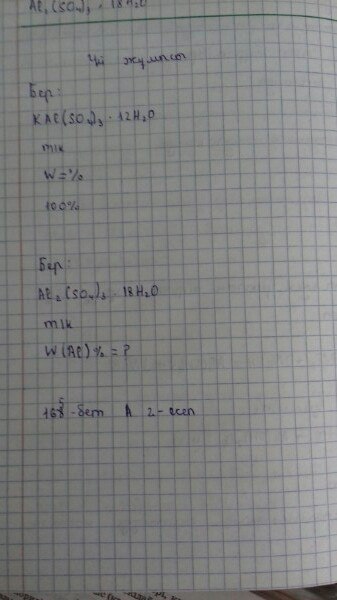 Al₂(SO₄)₃ · 18H₂O
Үй жұмысы
Бер:
KAl(SO₄)₃ · 12H₂O
m/к
W=%
100%
Бер:
Al₂(SO₄)₃ · 18H₂O
m/к
W(Al)% = ?
165-бет А 2-есеп